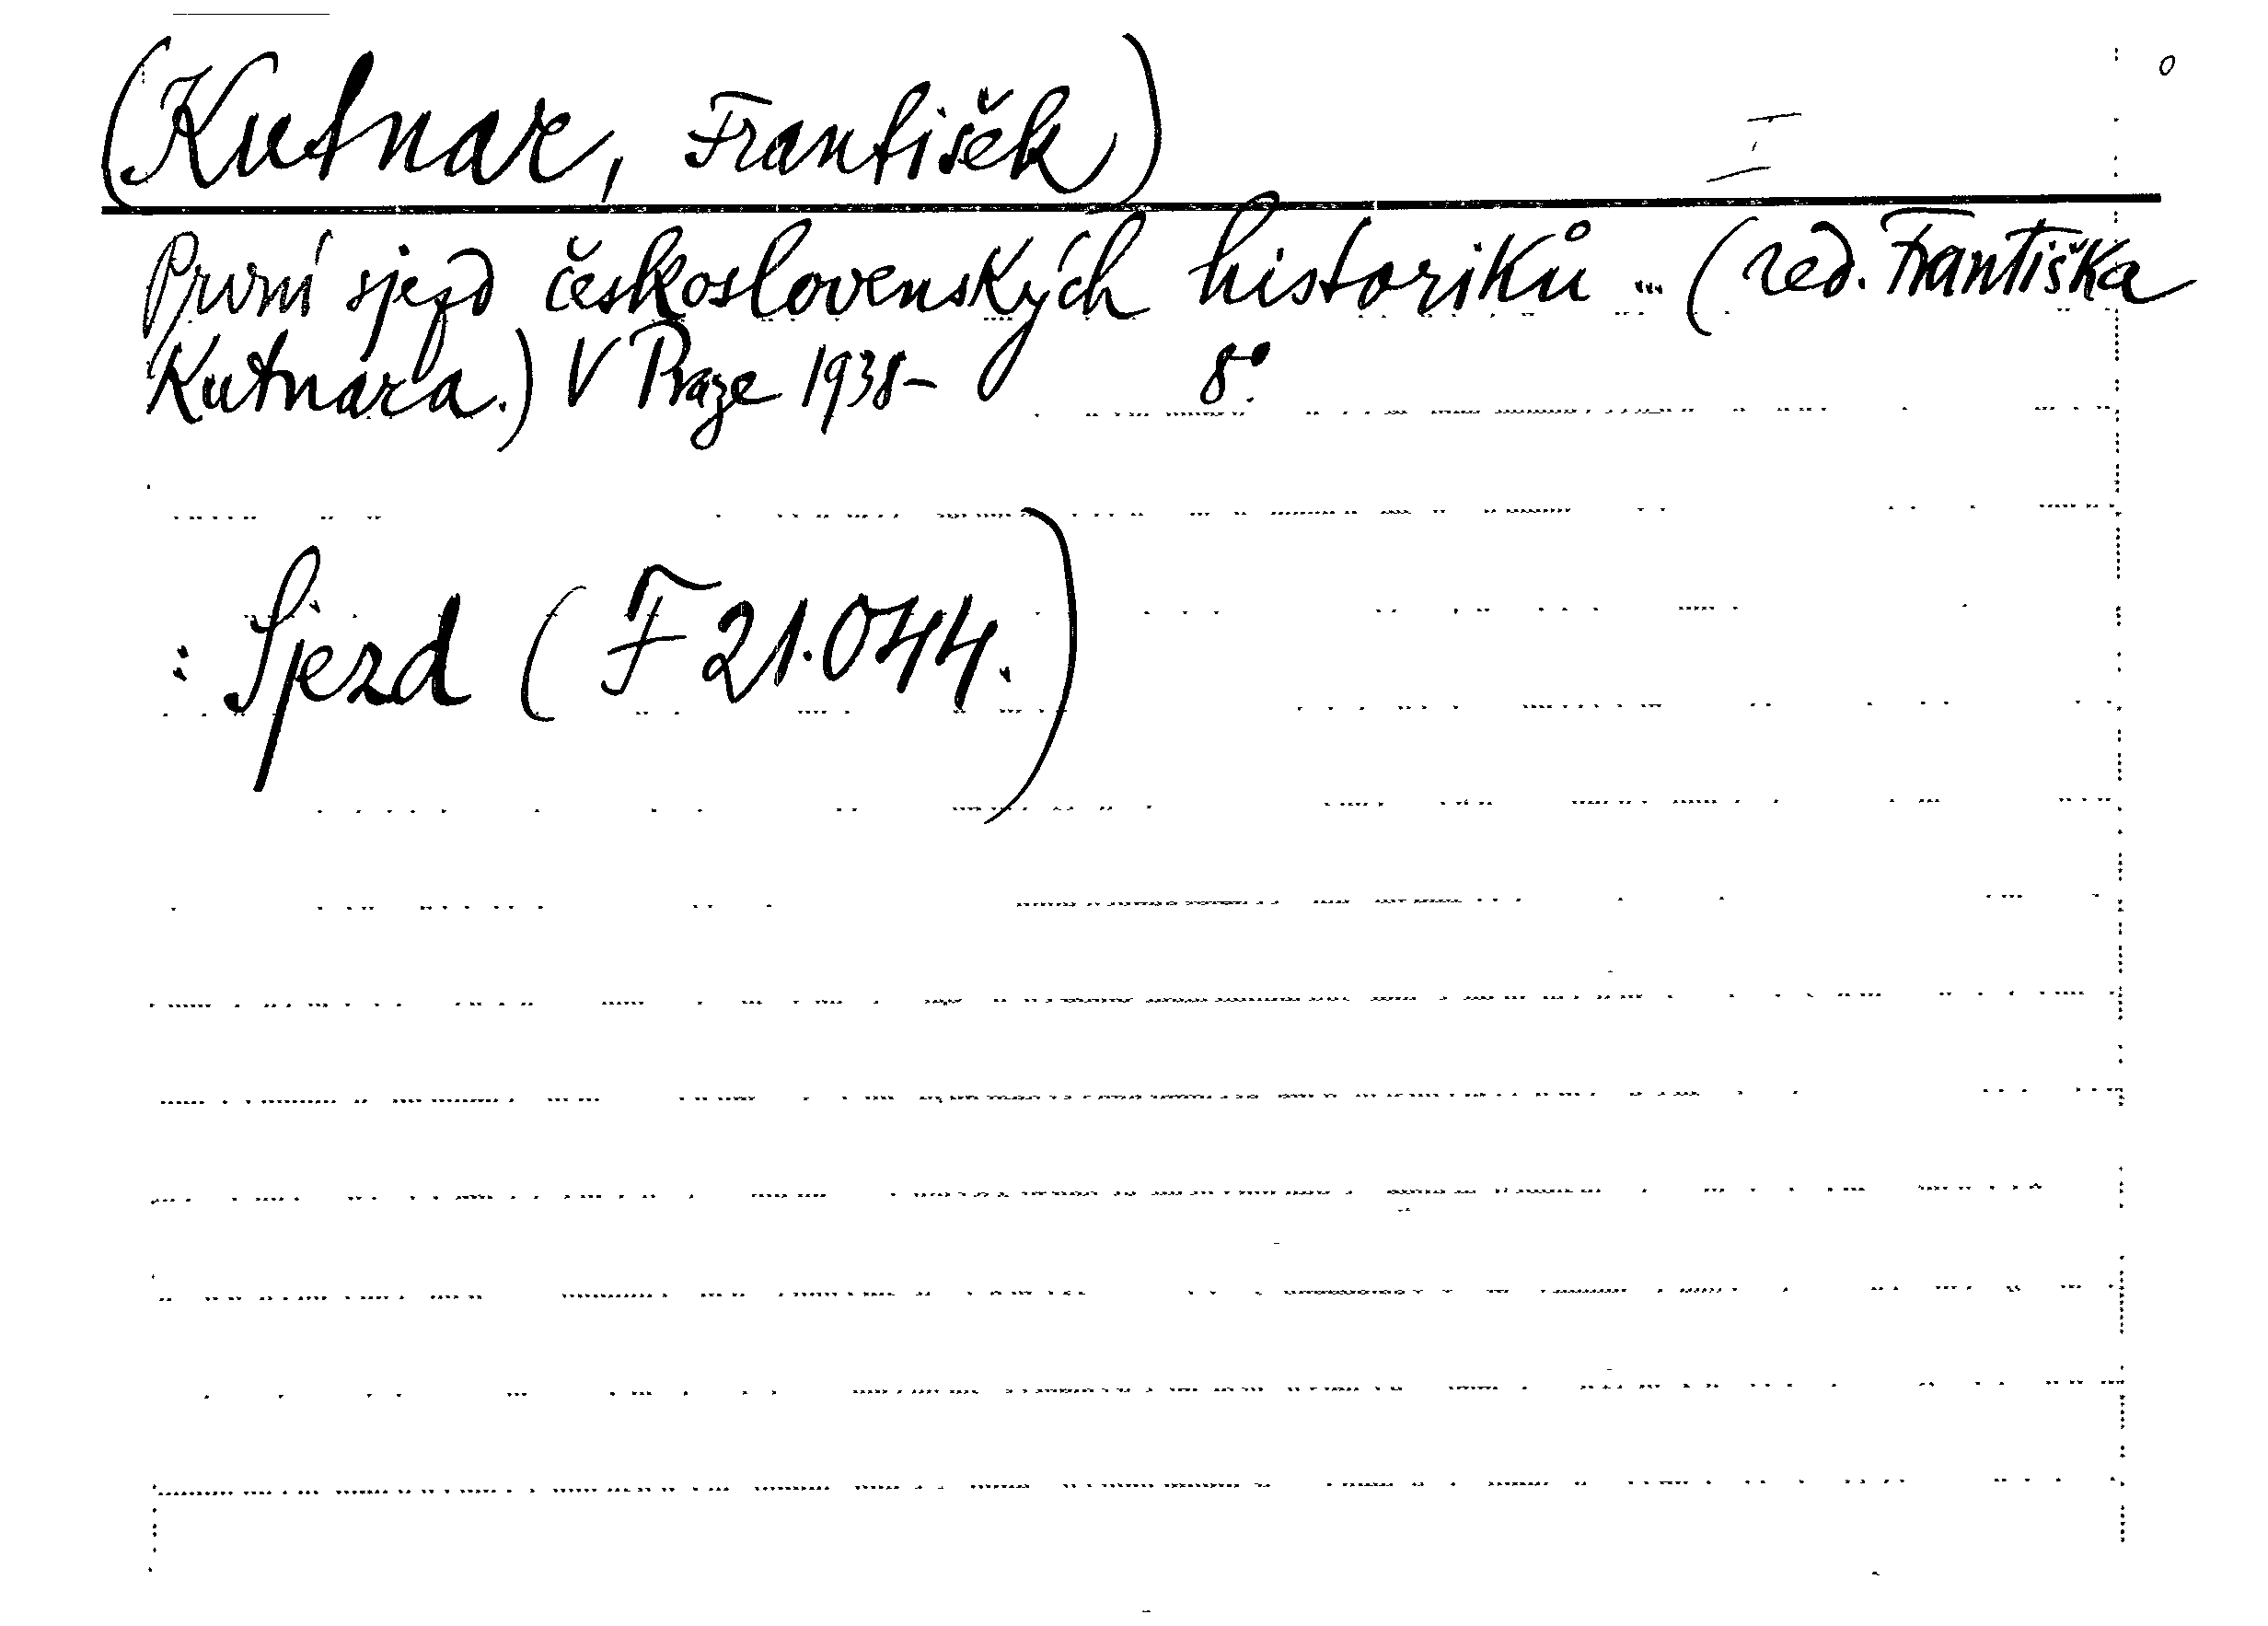 (Kutnar, František)
První sjezd československých historiků ... (red. Františka
Kutnara.) V Praze 1938- 8°.
: Sjezd (F 21.044.)